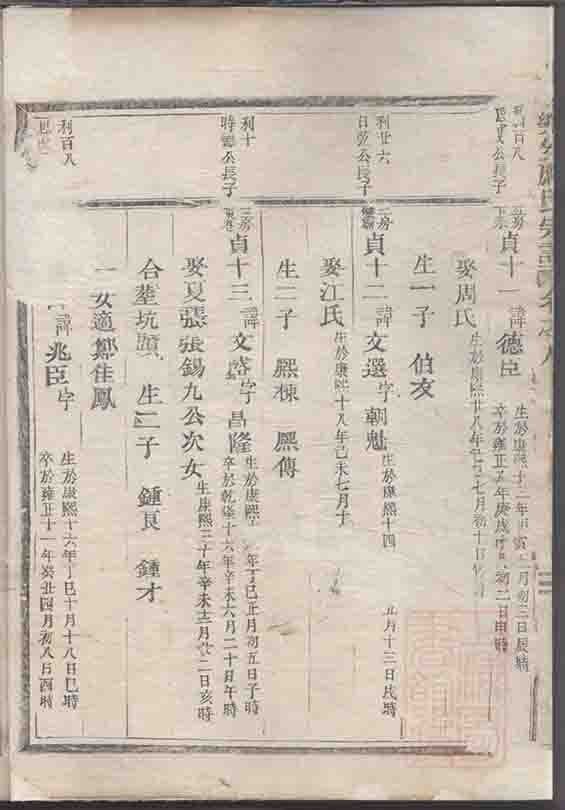 利百八
公長子
貞十一 諱德臣
生於康熙十三年甲寅 月初三日辰時
卒於雍正 年庚戌 月初二日申時
娶周氏
生於康熙廿八年 七月初十日
生一子 伯友
利廿六
日 公長子
三房
貞十二 諱文選字朝魁
生於康熙十四 五月十三日戌時
娶江氏
生於康熙十八年己未七月十
生二子 熙棟 熙傳
利十
時 公長子
三房
貞十三 諱文 字昌隆
生於康熙 年丁巳正月初五日子時
卒於乾隆十六年辛未六月二十日午時
娶夏 張錫九公次女
生康熙三十年辛未十二月廿二日亥時
合塟坑頭 生二子 鍾良 鍾才
一女適鄒佳鳳
利百八
諱兆臣字
生於康熙十六年丁巳十月十八日巳時
卒於雍正十一年癸丑四月初八日酉時